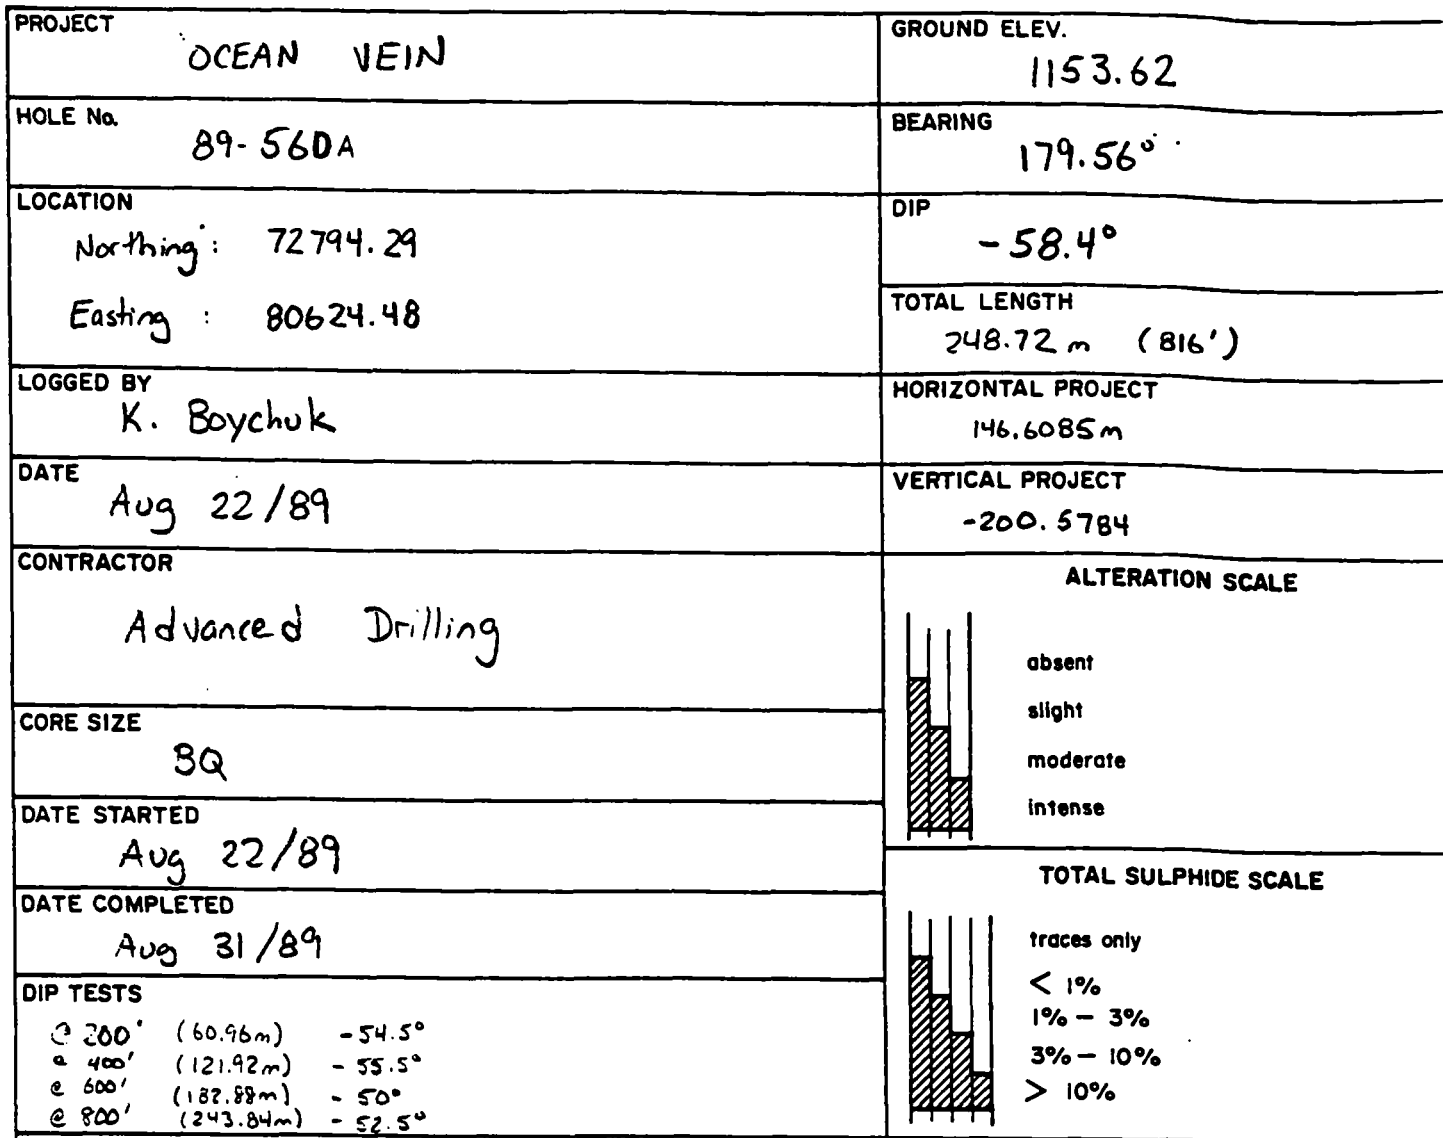 PROJECT
OCEAN VEIN
HOLE No.
89-56DA
LOCATION
Northing: 72794.29
Easting : 80624.48
LOGGED BY
K. Boychuk
DATE
Aug 22/89
CONTRACTOR
Advanced Drilling
CORE SIZE
BQ
DATE STARTED
Aug 22/89
DATE COMPLETED
Aug 31/89
DIP TESTS
@ 200' (60.96m) -54.5°
@ 400' (121.92m) -55.5°
@ 600' (182.88m) -50°
@ 800' (243.84m) -52.5°
GROUND ELEV.
1153.62
BEARING
179.56°
DIP
-58.4°
TOTAL LENGTH
248.72 m (816')
HORIZONTAL PROJECT
146.6085m
VERTICAL PROJECT
-200.5784
ALTERATION SCALE
absent
slight
moderate
intense
TOTAL SULPHIDE SCALE
traces only
< 1%
1% – 3%
3% – 10%
> 10%